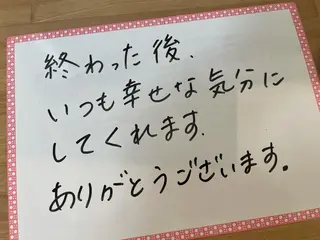 終わった後、
いつも幸せな気分に
してくれます。
ありがとうございます。